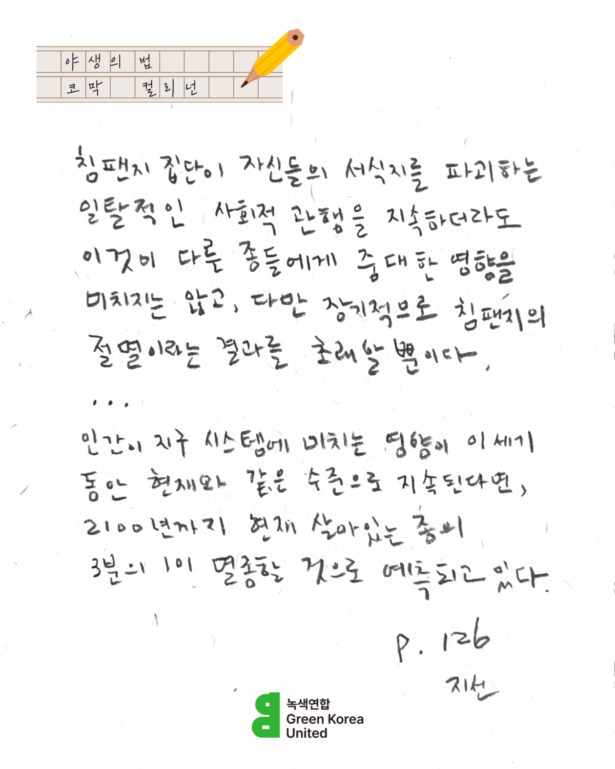 야생의 법
코막 컬리넌
침팬지 집단이 자신들의 서식지를 파괴하는
일탈적인 사회적 관행을 지속하더라도
이것이 다른 종들에게 중대한 영향을
미치지는 않고, 다만 장기적으로 침팬지의
절멸이라는 결과를 초래할 뿐이다.
...
인간이 지구 시스템에 미치는 영향이 이 세기
동안 현재와 같은 수준으로 지속된다면,
2100년까지 현재 살아있는 종의
3분의 1이 멸종할 것으로 예측되고 있다.
p. 126
지선
녹색연합
Green Korea
United